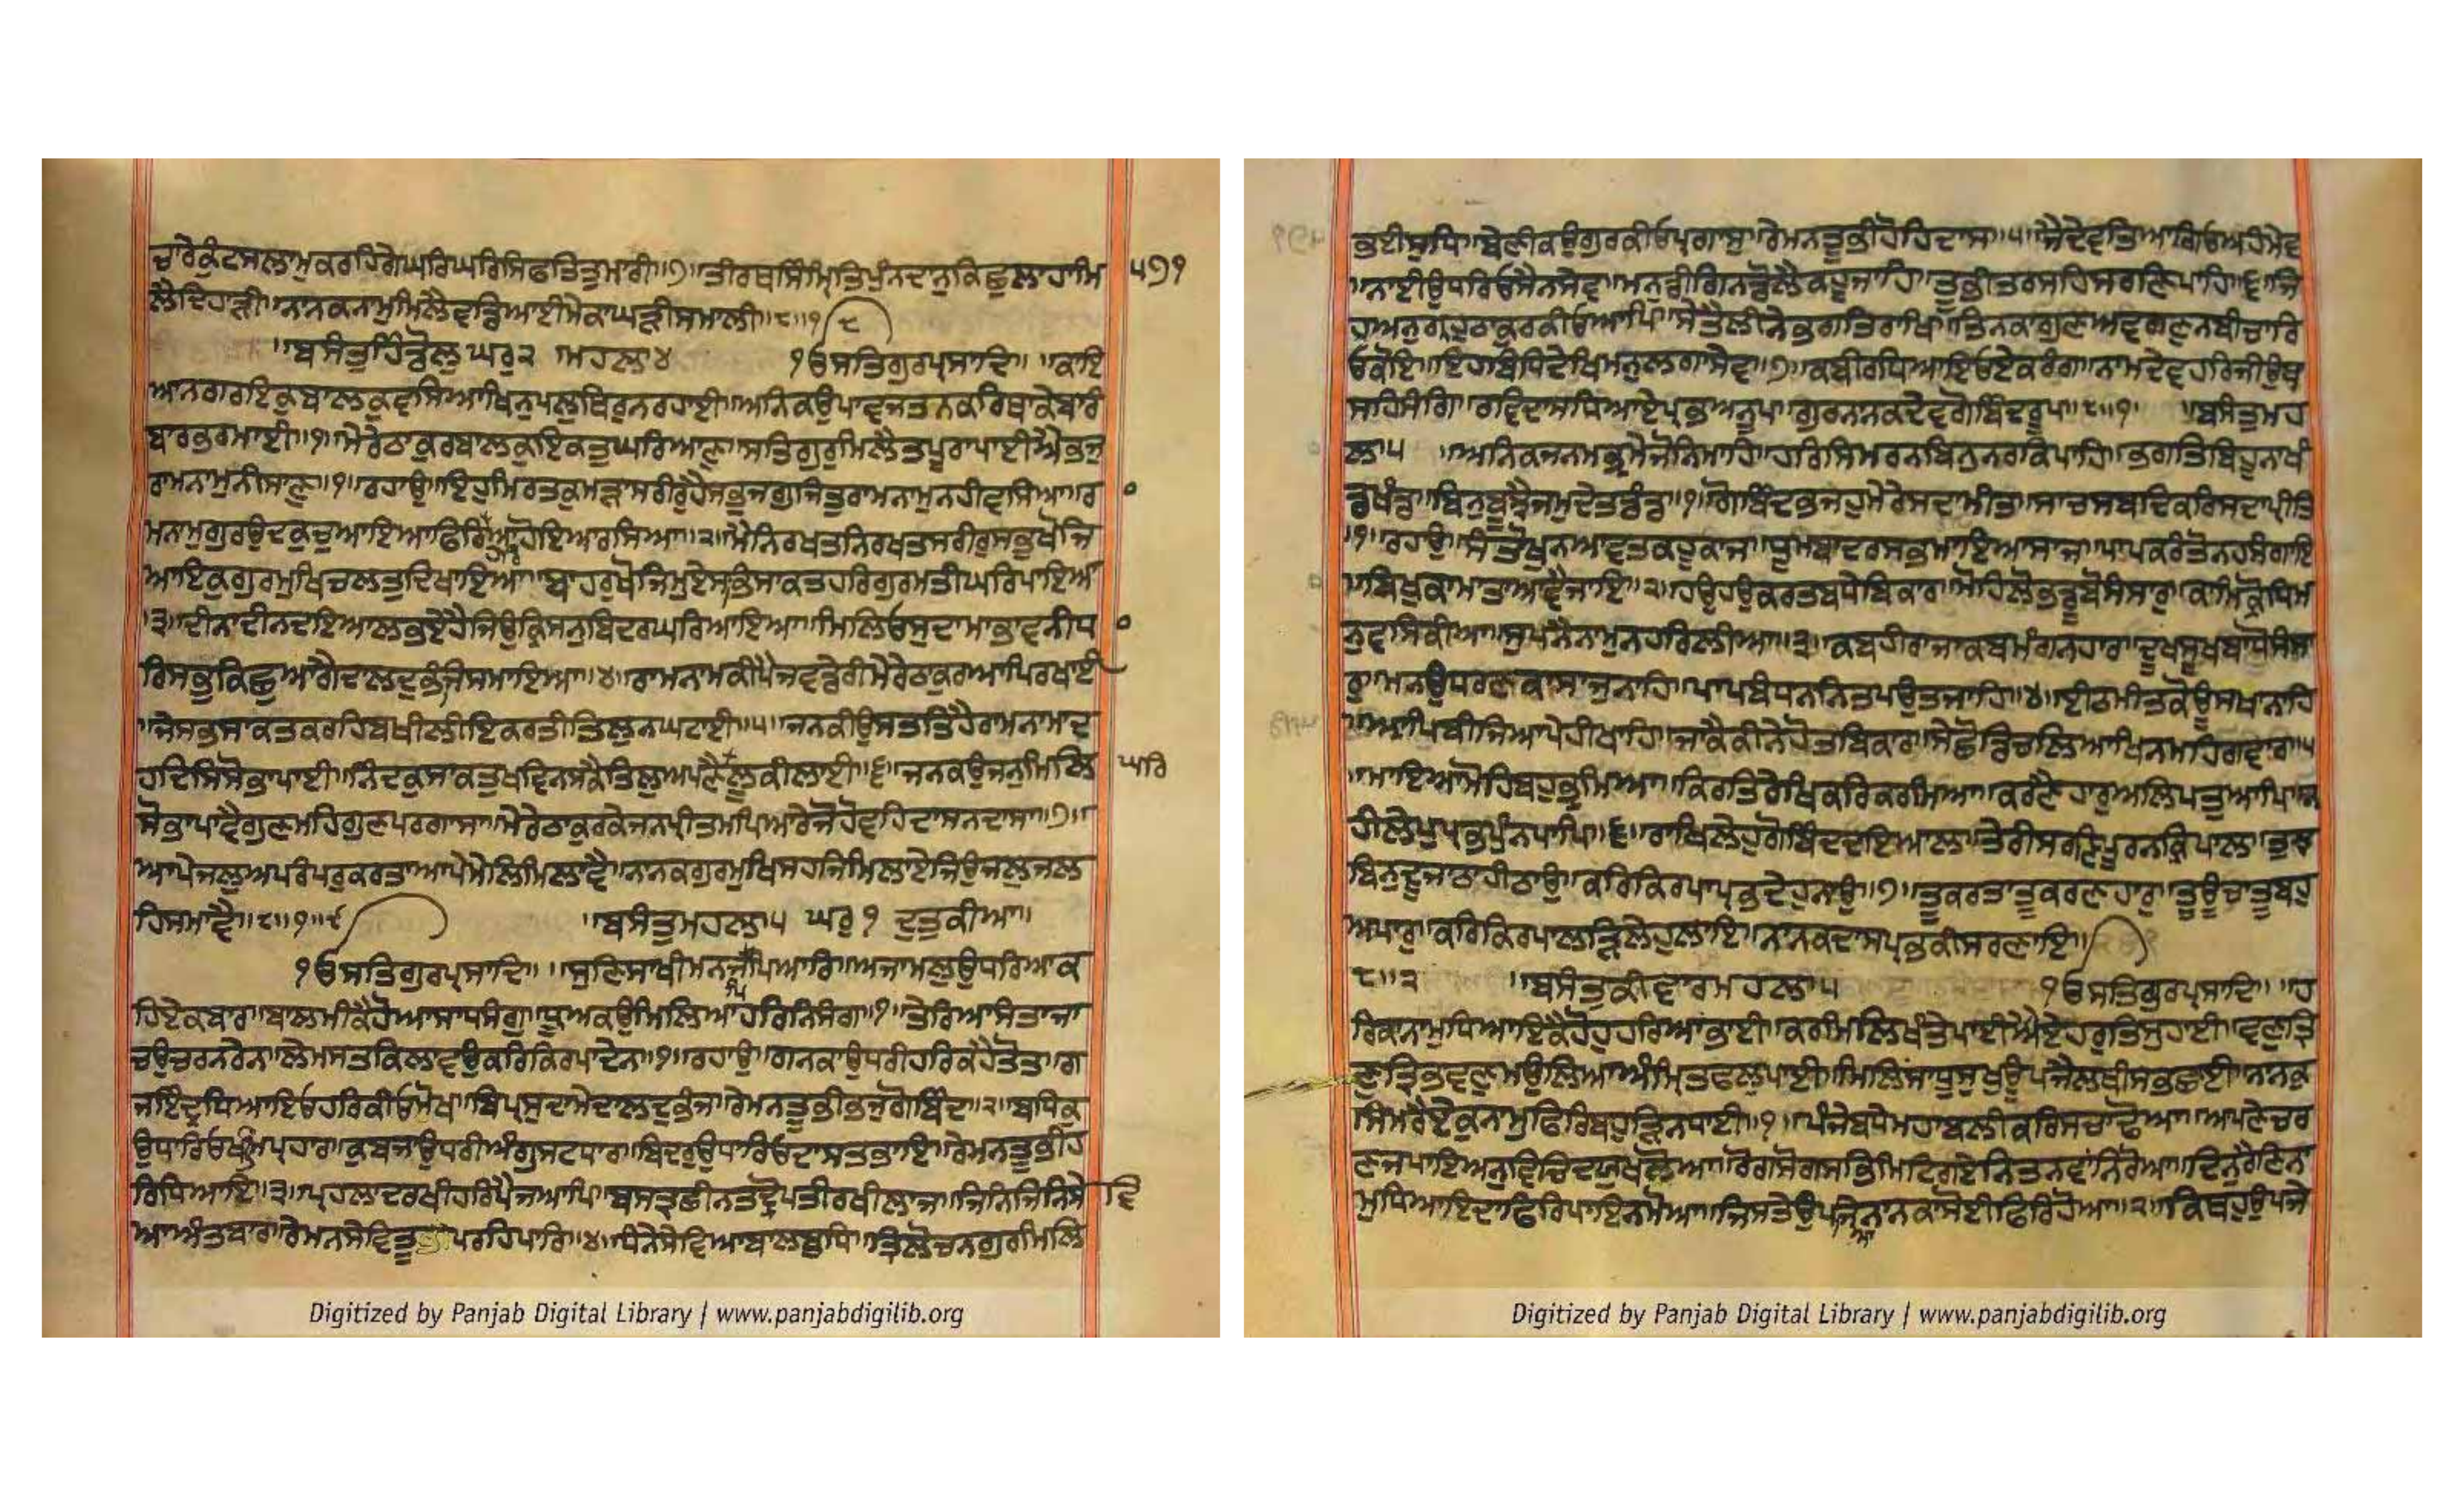 ਚਾਰੇਕੁੰਟਸਲਾਮੁਕਰਹਿਗੇਘਰਿਘਰਿਸਿਫਤਿਤੁਮਾਰੀ॥੭॥ਤੀਰਥਸਿੰਮ੍ਰਿਤਿਪੁੰਨਦਾਨੁਕਿਛੁਲਾਹਾਮਿ ੫੭੧
ਲੈਦਿਹਾੜੀ॥ਨਾਨਕਨਾਮੁਮਿਲੈਵਡਿਆਈਮੇਕਾਘੜੀਸਮਾਲੀ॥੮॥੧ ੮
॥ਬਸੰਤੁਹਿੰਡੋਲੁਘਰੁ੨ ਮਹਲਾ੪ ੴਸਤਿਗੁਰਪ੍ਰਸਾਦਿ॥ ॥ਕਾਇ
ਆਨਗਰਇਕੁਬਾਲਕੁਵਸਿਆਖਿਨੁਪਲੁਥਿਰੁਨਰਹਾਈ॥ਅਨਿਕਉਪਾਵਜਤਨਕਰਿਥਾਕੇਬਾਰੰ
ਬਾਰਭਰਮਾਈ॥੧॥ਮੇਰੇਠਾਕੁਰਬਾਲਕੁਇਕਤੁਘਰਿਆਣੁ॥ਸਤਿਗੁਰੁਮਿਲੈਤਪੂਰਾਪਾਈਐਭਜੁ
ਰਾਮਨਾਮੁਨੀਸਾਣੁ॥੧॥ਰਹਾਉ॥ਇਹੁਮਿਰਤਕੁਮੜਾਸਰੀਰੁਹੈਸਭੁਜਗੁਜਿਤੁਰਾਮਨਾਮੁਨਹੀਵਸਿਆ॥ਰਾ
ਮਨਾਮੁਗੁਰਉਦਕੁਚੁਆਇਆਫਿਰਿਹਰਿਆਹੋਇਆਰਸਿਆ॥੨॥ਮੈਨਿਰਖਤਨਿਰਖਤਸਰੀਰੁਸਭੁਖੋਜਿ
ਆਇਕੁਗੁਰਮੁਖਿਚਲਤੁਦਿਖਾਇਆ॥ਬਾਹਰੁਖੋਜਿਮੁਏਸਭਿਸਾਕਤਹਰਿਗੁਰਮਤੀਘਰਿਪਾਇਆ
॥੩॥ਦੀਨਾਦੀਨਦਇਆਲਭਏਹੈਜਿਉਕ੍ਰਿਸਨੁਬਿਦਰਘਰਿਆਇਆ॥ਮਿਲਿਓਸੁਦਾਮਾਭਾਵਨੀਧਾ
ਰਿਸਭੁਕਿਛੁਆਗੈਦਾਲਦੁਭੰਜਿਸਮਾਇਆ॥੪॥ਰਾਮਨਾਮਕੀਪੈਜਵਡੇਰੀਮੇਰੇਠਾਕੁਰਆਪਿਰਖਾਈ
॥ਜੇਸਭਸਾਕਤਕਰਹਿਬਖੀਲੀਇਕਰਤੀਤਿਲੁਨਘਟਾਈ॥੫॥ਜਨਕੀਉਸਤਤਿਹੈਰਾਮਨਾਮਾਦ
ਹਦਿਸਿਸੋਭਾਪਾਈ॥ਨਿੰਦਕੁਸਾਕਤੁਖਵਿਨਸਕੈਤਿਲੁਅਪਣੈਲੂਕੀਲਾਈ॥੬॥ਜਨਕਉਜਨੁਮਿਲਿ ਘਰਿ
ਸੋਭਾਪਾਵੈਗੁਣਮਹਿਗੁਣਪਰਗਾਸਾ॥ਮੇਰੇਠਾਕੁਰਕੇਜਨਪ੍ਰੀਤਮਪਿਆਰੇਜੋਹੋਵਹਿਦਾਸਨਦਾਸਾ॥੭॥
ਆਪੇਜਲੁਅਪਰੰਪਰੁਕਰਤਾਆਪੇਮੇਲਿਮਿਲਾਵੈ॥ਨਾਨਕਗੁਰਮੁਖਿਸਹਜਿਮਿਲਾਏਜਿਉਜਲੁਜਲ
ਹਿਸਮਾਵੈ॥੮॥੧॥੯ ॥ਬਸੰਤੁਮਹਲਾ੫ ਘਰੁ੧ ਦੁਤੁਕੀਆ॥
ੴਸਤਿਗੁਰਪ੍ਰਸਾਦਿ॥ ॥ਸੁਣਿਸਾਖੀਮਨਜਪਿਪਿਆਰਿ॥ਅਜਾਮਲੁਉਧਰਿਆਕ
ਹਿਏਕਬਾਰ॥ਬਾਲਮੀਕੈਹੋਆਸਾਧਸੰਗੁ॥ਧ੍ਰੂਅਕਉਮਿਲਿਆਹਰਿਨਿਸੰਗ॥੧॥ਤੇਰਿਆਸੰਤਾਜਾ
ਚਉਚਰਨਰੇਨ॥ਲੈਮਸਤਕਿਲਾਵਉਕਰਿਕਿਰਪਾਦੇਨ॥੧॥ਰਹਾਉ॥ਗਨਕਾਉਧਰੀਹਰਿਕਹੈਤੋਤ॥ਗ
ਜਇੰਦ੍ਰਧਿਆਇਓਹਰਿਕੀਓਮੋਖ॥ਬਿਪ੍ਰਸੁਦਾਮੇਦਾਲਦੁਭੰਜ॥ਰੇਮਨਤੂਭੀਭਜੁਗੋਬਿੰਦ॥੨॥ਬਧਿਕੁ
ਉਧਾਰਿਓਖਮਿਪ੍ਰਹਾਰ॥ਕੁਬਜਾਉਧਰੀਅੰਗੁਸਟਧਾਰ॥ਬਿਦਰੁਉਧਾਰਿਓਦਾਸਤਭਾਇ॥ਰੇਮਨਤੂਭੀਹ
ਰਿਧਿਆਇ॥੩॥ਪ੍ਰਹਲਾਦਰਖੀਹਰਿਪੈਜਆਪਿ॥ਬਸਤ੍ਰਛੀਨਤਦ੍ਰੋਪਤੀਰਖੀਲਾਜ॥ਜਿਨਿਜਿਨਿਸੇ ਵਿ
ਆਅੰਤਬਾਰ॥ਰੇਮਨਸੇਵਿਤੂਪਰਹਿਪਾਰਿ॥੪॥ਧੰਨੈਸੇਵਿਆਬਾਲਬੁਧਿ॥ਤ੍ਰਿਲੋਚਨਗੁਰਮਿਲਿ
ਭਈਸੁਧਿ॥ਬੇਣੀਕਉਗੁਰਕੀਓਪ੍ਰਗਾਸੁ॥ਰੇਮਨਤੂਭੀਹੋਹਿਦਾਸ॥੫॥ਜੈਦੇਵਤਿਆਗਿਓਅਹੰਮੇਵ
॥ਨਾਈਉਧਰਿਓਸੈਨਸੇਵ॥ਮਨੁਡੀਗਿਨਡੋਲੈਕਹੂੰਜਾਹਿ॥ਤੂਭੀਤਰਸਹਿਸਰਣਿਪਾਹਿ॥੬॥ਜਿ
ਹਅਨੁਗ੍ਰਹੁਠਾਕੁਰਕੀਓਆਪਿ॥ਸੇਤੈਲੀਨੇਭਗਤਿਰਾਖਿ॥ਤਿਨਕਾਗੁਣਅਵਗਣੁਨਬੀਚਾਰਿ
ਓਕੋਇ॥ਇਹਬਿਧਿਦੇਖਿਮਨੁਲਗਾਸੇਵ॥੭॥ਕਬੀਰਧਿਆਇਓਏਕਰੰਗ॥ਨਾਮਦੇਵਹਰਿਜੀਉਬ
ਸਹਿਸੰਗਿ॥ਰਵਿਦਾਸਧਿਆਏਪ੍ਰਭਅਨੂਪ॥ਗੁਰਨਾਨਕਦੇਵਗੋਵਿੰਦਰੂਪ॥੮॥੧॥ ॥ਬਸੰਤੁਮਹ
ਲਾ੫ ॥ਅਨਿਕਜਨਮਭ੍ਰਮੇਜੋਨਿਮਾਹਿ॥ਹਰਿਸਿਮਰਨਬਿਨੁਨਰਕਿਪਾਹਿ॥ਭਗਤਿਬਿਹੂਨਾਖੰ
ਡਖੰਡ॥ਬਿਨੁਬੂਝੇਜਮੁਦੇਤਡੰਡ॥੧॥ਗੋਬਿੰਦਭਜਹੁਮੇਰੇਸਦਾਮੀਤ॥ਸਾਚਸਬਦਕਰਿਸਦਾਪ੍ਰੀਤਿ
॥੧॥ਰਹਾਉ॥ਸੰਤੋਖੁਨਆਵਤਕਹੂੰਕਾਜ॥ਧੂੰਮਬਾਦਰਸਭਿਮਾਇਆਸਾਜ॥ਪਾਪਕਰੰਤੋਨਹਸੰਗਾਇ
॥ਬਿਖੁਕਾਮਾਤਾਆਵੈਜਾਇ॥੨॥ਹਉਹਉਕਰਤਬਧੇਬਿਕਾਰ॥ਮੋਹਲੋਭਡੂਬੌਸੰਸਾਰ॥ਕਾਮਿਕ੍ਰੋਧਿਮ
ਨੁਵਸਿਕੀਆ॥ਸੁਪਨੈਨਾਮੁਨਹਰਿਲੀਆ॥੩॥ਕਬਹੀਰਾਜਾਕਬਮੰਗਨਹਾਰੁ॥ਦੂਖਸੂਖਬਾਧੌਸੰਸਾ
ਰ॥ਮਨਉਧਰਣਕਾਸਾਜੁਨਾਹਿ॥ਪਾਪਬੰਧਨਨਿਤਪਉਤਜਾਹਿ॥੪॥ਈਠਮੀਤਕੋਊਸਖਾਨਾਹਿ
॥ਆਪਿਬੀਜਿਆਪੇਹੀਖਾਹਿ॥ਜਾਕੈਕੀਨੈਹੋਤਬਿਕਾਰ॥ਸੇਛੋਡਿਚਲਿਆਖਿਨਮਹਿਗਵਾਰ॥੫
॥ਮਾਇਆਮੋਹਿਬਹੁਭ੍ਰਮਿਆ॥ਕਿਰਤਿਰੇਖਿਕਰਿਕਰਮਿਆ॥ਕਰਣੈਹਾਰੁਅਲਿਪਤੁਆਪਿ॥ਨ
ਹੀਲੇਪੁਪ੍ਰਭਪੁੰਨਪਾਪਿ॥੬॥ਰਾਖਿਲੇਹੁਗੋਬਿੰਦਦਇਆਲ॥ਤੇਰੀਸਰਣਿਪੂਰਨਕ੍ਰਿਪਾਲ॥ਤੁਝ
ਬਿਨੁਦੂਜਾਨਹੀਠਾਉ॥ਕਰਿਕਿਰਪਾਪ੍ਰਭਦੇਹੁਨਾਉ॥੭॥ਤੂਕਰਤਾਤੂਕਰਣਹਾਰੁ॥ਤੂਊਚਾਤੂਬਹੁ
ਅਪਾਰੁ॥ਕਰਿਕਿਰਪਾਲੜਿਲੇਹੁਲਾਇ॥ਨਾਨਕਦਾਸਪ੍ਰਭਕੀਸਰਣਾਇ॥
੮॥੨ ॥ਬਸੰਤੁਕੀਵਾਰਮਹਲਾ੫ ੴਸਤਿਗੁਰਪ੍ਰਸਾਦਿ॥ ॥ਹ
ਰਿਕਾਨਾਮੁਧਿਆਇਕੈਹੋਹੁਹਰਿਆਭਾਈ॥ਕਰਮਿਲਿਖੰਤੈਪਾਈਐਏਹਰੁਤਿਸੁਹਾਈ॥ਵਣੁਤ੍ਰਿ
ਣੁਤ੍ਰਿਭਵਣੁਮਉਲਿਆਅੰਮ੍ਰਿਤਫਲੁਪਾਈ॥ਮਿਲਿਸਾਧੂਸੁਖੁਊਪਜੈਲਥੀਸਭਛਾਈ॥ਨਾਨਕੁ
ਸਿਮਰੈਏਕੁਨਾਮੁਫਿਰਿਬਹੁੜਿਨਧਾਈ॥੧॥ਪੰਜੇਬਧੇਮਹਾਬਲੀਕਰਿਸਚਾਢੋਆ॥ਅਪਣੇਚਰ
ਣਜਪਾਇਅਨੁਵਿਚਿਦਯੁਖਲੋਆ॥ਰੋਗਸੋਗਸਭਿਮਿਟਿਗਏਨਿਤਨਵਾਨਿਰੋਆ॥ਦਿਨੁਰੈਣਿਨਾ
ਮੁਧਿਆਇਦਾਫਿਰਿਪਾਇਨਮੋਆ॥ਜਿਸਤੇਉਪਜਿਆਨਾਨਕਾਸੋਈਫਿਰਿਹੋਆ॥੨॥ਕਿਥਹੁਉਪਜੈ
Digitized by Panjab Digital Library | www.panjabdigilib.org
Digitized by Panjab Digital Library | www.panjabdigilib.org